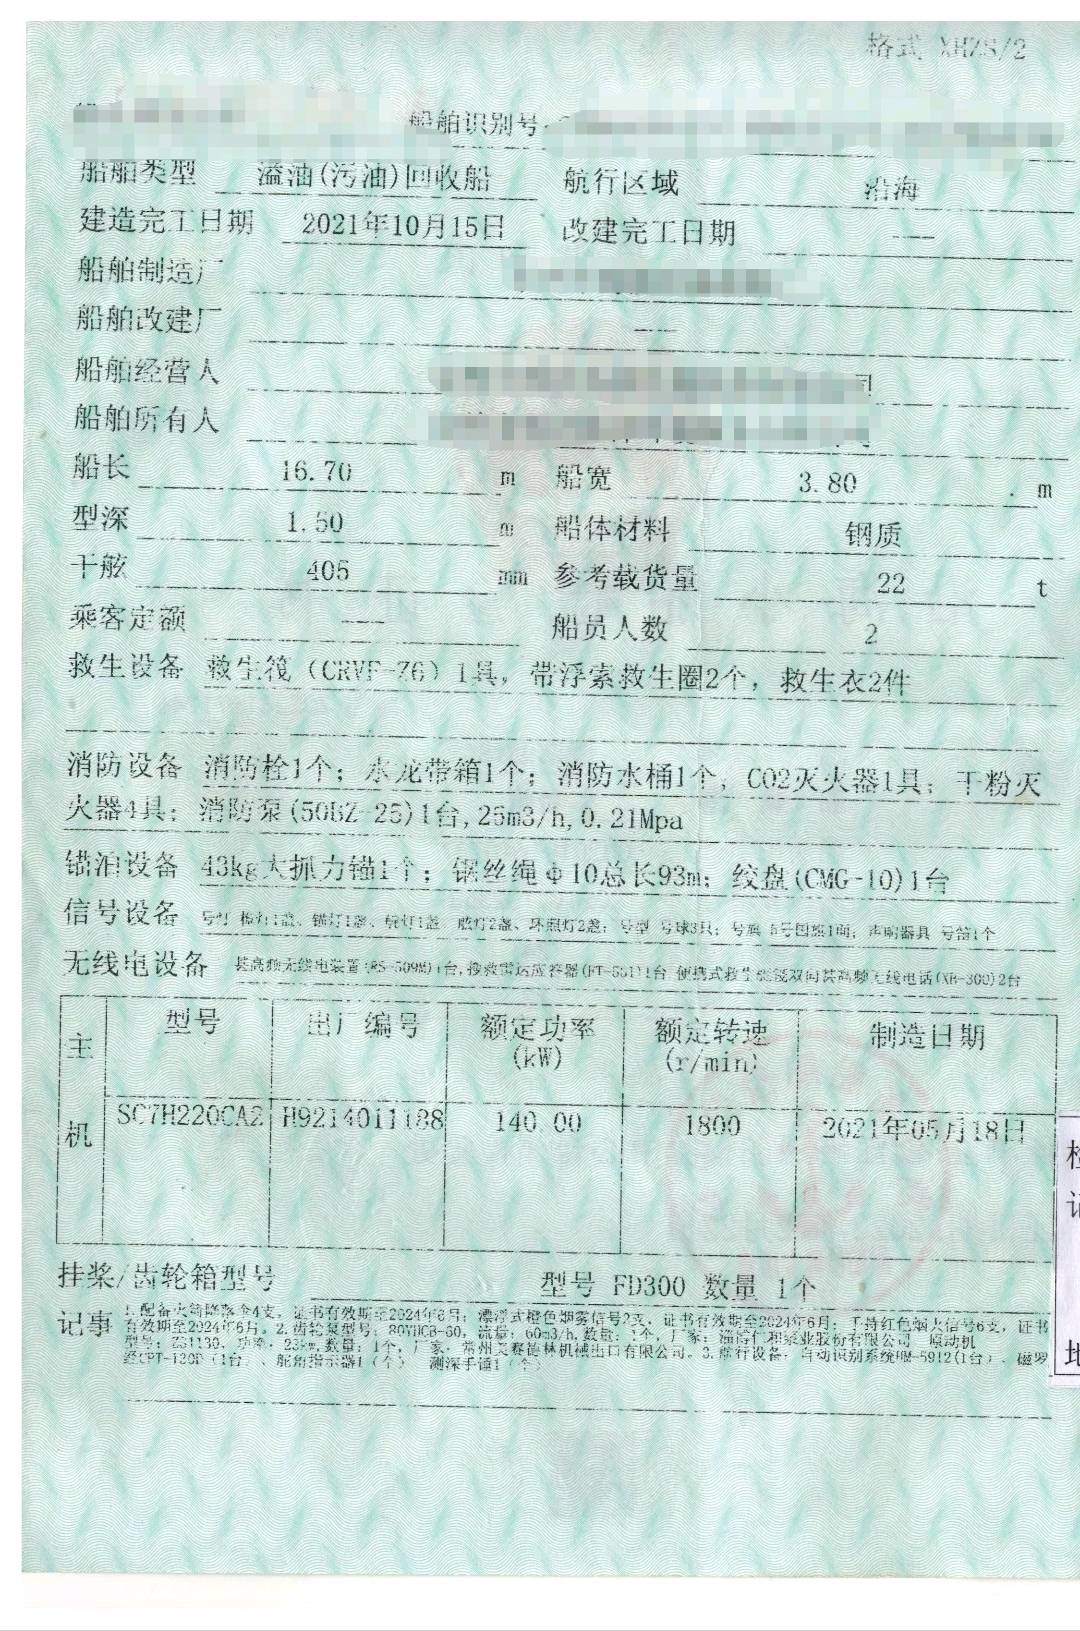 格式 XHZS/2
船舶识别号
船舶类型 溢油(污油)回收船 航行区域 沿海
建造完工日期 2021年10月15日 改建完工日期 ——
船舶制造厂
船舶改建厂 ——
船舶经营人
船舶所有人
船长 16.70 m 船宽 3.80 m
型深 1.50 m 船体材料 钢质
干舷 405 mm 参考载货量 22 t
乘客定额 —— 船员人数 2
救生设备 救生筏 (CRVF-Z6) 1具, 带浮索救生圈2个, 救生衣2件
消防设备 消防栓1个; 水龙带箱1个; 消防水桶1个, CO2灭火器1具; 干粉灭
火器4具; 消防泵(50BZ-25)1台,25m3/h,0.21Mpa
锚泊设备 43kg大抓力锚1个; 钢丝绳φ10总长93m; 绞盘(CMG-10)1台
信号设备 号灯 桅灯1盏、锚灯1盏、艉灯1盏 舷灯2盏、环照灯2盏; 号型 号球3只; 号旗 国旗1面; 声响器具 号笛1个
无线电设备 甚高频无线电装置(RS-509M)1台,搜救雷达应答器(FT-551)1台 便携式救生艇筏双向甚高频无线电话(XH-300)2台
主机 型号 出厂编号 额定功率(kW) 额定转速(r/min) 制造日期
SC7H220CA2 H9214011188 140.00 1800 2021年05月18日
挂桨/齿轮箱型号 型号 FD300 数量 1个
记事 1.配备火箭降落伞4支, 证书有效期至2024年6月; 漂浮式橙色烟雾信号2支, 证书有效期至2024年6月; 手持红色烟火信号6支, 证书
有效期至2024年6月。2.齿轮泵型号: 80YHCB-60, 流量: 60m3/h,数量: 1个, 厂家: 淄博仁和泵业股份有限公司 原动机
型号: ZS1130, 功率: 23kw,数量: 1个, 厂家: 常州美赛德林机械出口有限公司。3.航行设备: 自动识别系统HM-5912(1台)、磁罗
经CPT-130D (1台)、舵角指示器1 (个) 测深手锤1 (个)